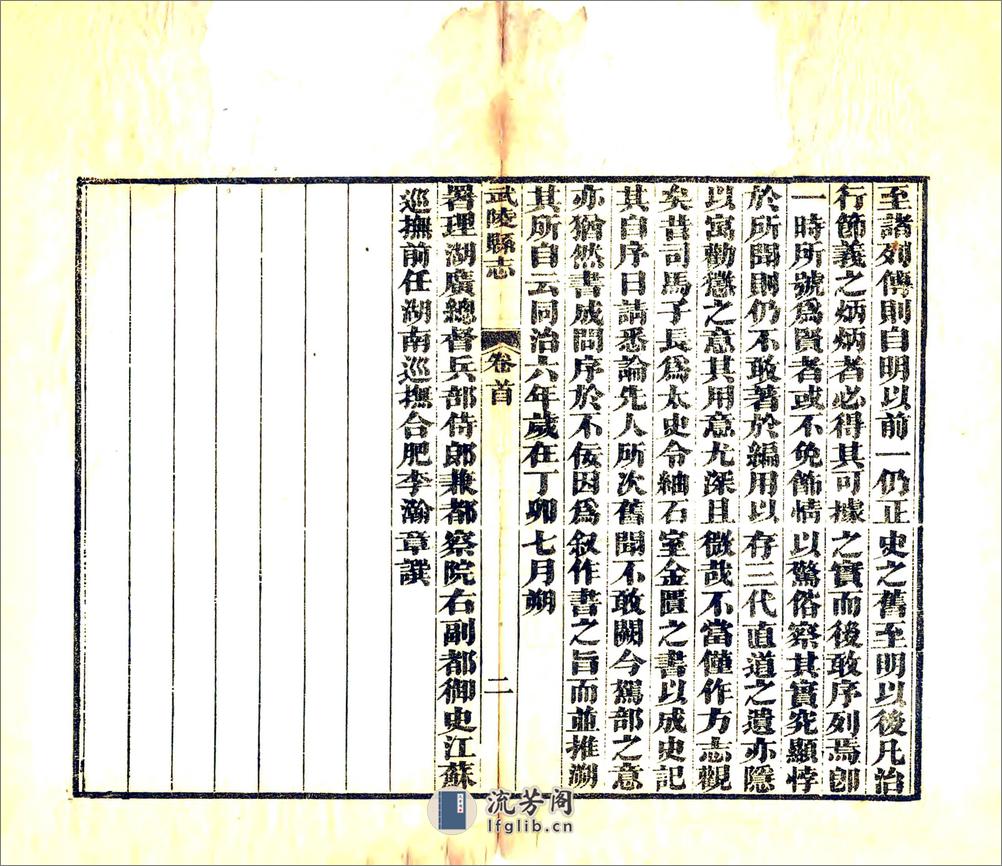 至諸列傳則自明以前一仍正史之舊至明以後凡治
行節義之炳炳者必得其可據之實而後敢序列焉卽
一時所號爲賢者或不免飾情以驚俗察其實究顯悖
於所聞則仍不敢著於編用以存三代直道之遺亦隱
以寓勸懲之意其用意尤深且微哉不當僅作方志觀
矣昔司馬子長爲太史令紬石室金匱之書以成史記
其自序曰請悉論先人所次舊聞不敢闕今駕部之意
亦猶然書成問序於不佞因爲叙作書之旨而並推溯
其所自云同治六年歲在丁卯七月朔
武陵縣志 卷首 二
署理湖廣總督兵部侍郎兼都察院右副都御史江蘇
巡撫前任湖南巡撫合肥李瀚章譔
流芳阁
lfglib.cn